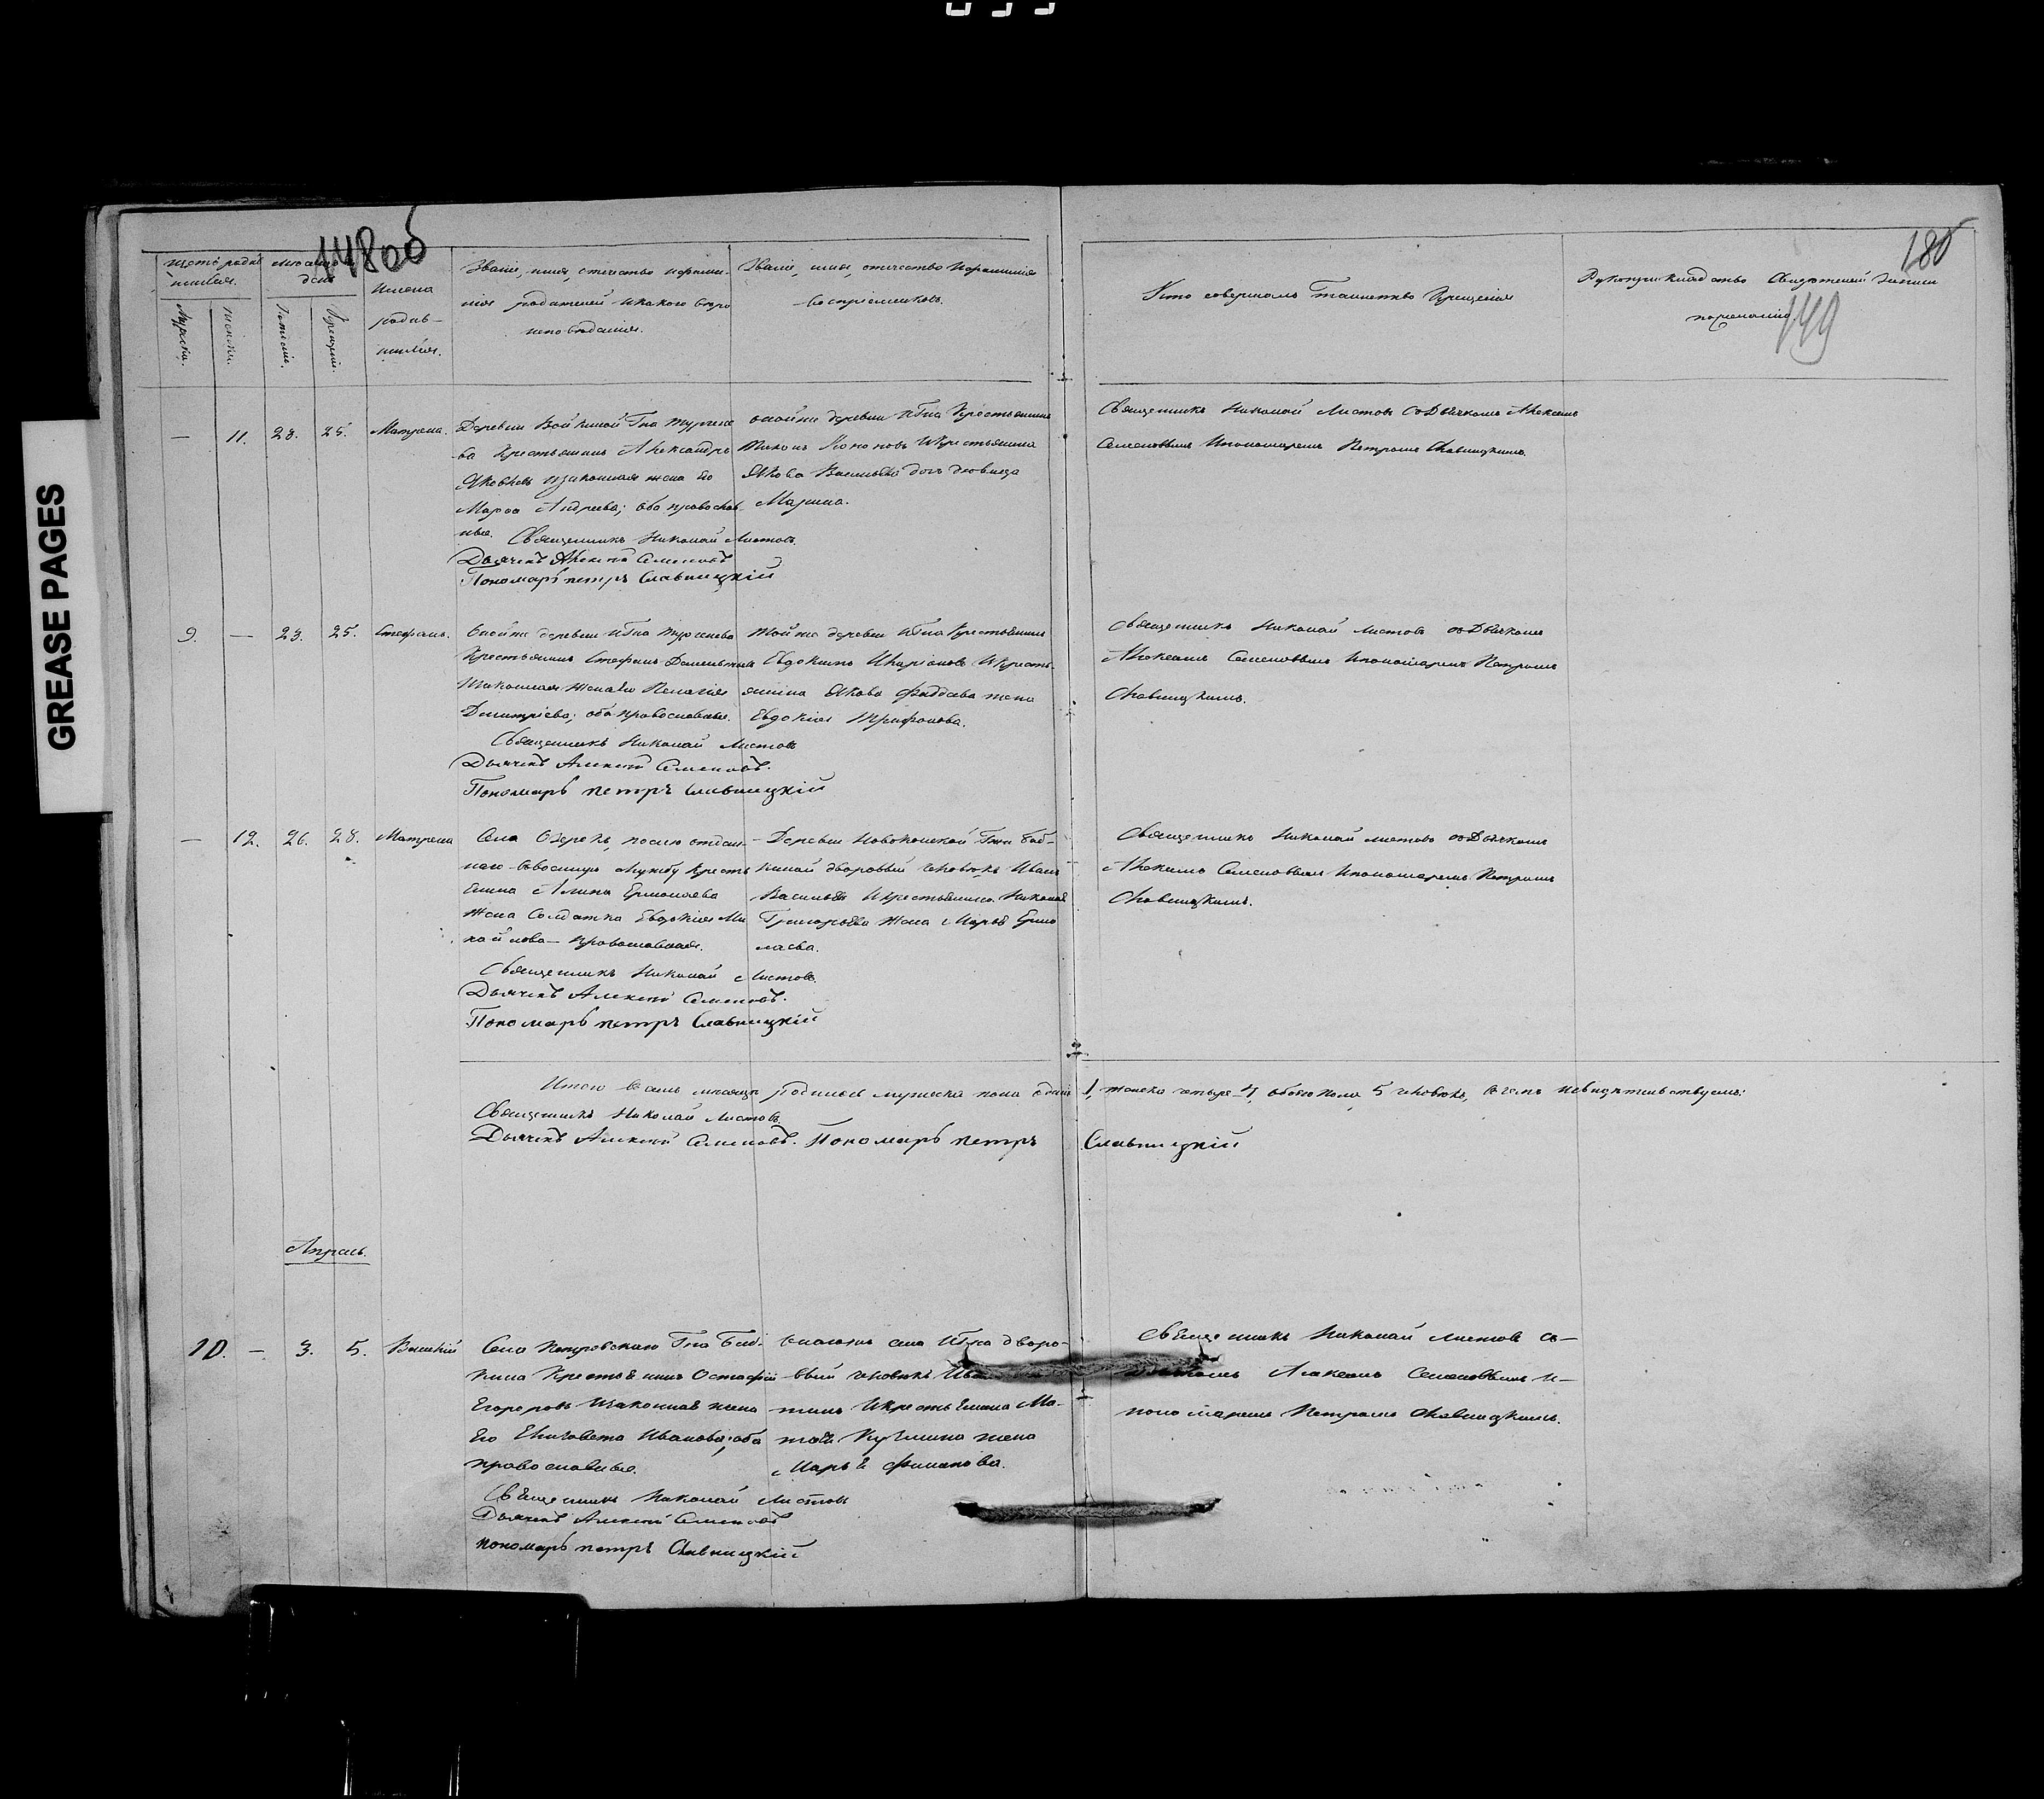 GREASE PAGES
148 об
180
149
Счетъ родив-
шихся.
Мужска.
женска.
Мѣсяцъ и
день
Рожденія.
Крещенія.
Имена
родив-
шихся.
Званіе, имя, отечество и фамилія
родителей и какого вѣро
исповѣданія.
Званіе, имя, отечество и фамилія
воспріемниковъ.
Кто совершалъ таинство Крещенія
Рукоприкладство свидѣтелей записи
по желанію
— 11. 23. 25. Матрена.
Деревни Гна Тургене
ва Крестьянинъ Александръ
Яковлевъ и законная жена его
Марѳа Андреева; оба православ
ные. Священникъ Николай Листовъ.
Дьячекъ Алексѣй Семеновъ
Пономарь петръ Славницкій
оной же деревни и Гна Крестьянинъ
Никонъ Кононовъ и Крестьянина
Якова Васильева дочь дѣвица
Марина.
Священникъ Николай Листовъ съ Дьячкомъ Алексѣемъ
Семеновымъ и пономаремъ Петромъ Славницкимъ.
9. — 23. 25. Стефанъ.
Оной же деревни и Гна Тургенева
Крестьянинъ Стефанъ
и законная жена его Пелагія
Димитріева; оба православные.
Священникъ Николай Листовъ
Дьячекъ Алексѣй Семеновъ.
Пономарь петръ Славницкій
Той же деревни и Гна Крестьянинъ
Евдокимъ Иларіоновъ и Кресть-
янина Якова Фаддѣева жена
Евдокія Трифонова.
Священникъ Николай Листовъ съ Дьячкомъ
Алексѣемъ Семеновымъ и пономаремъ Петромъ
Славницкимъ.
— 12. 26. 28. Матрена
Села Озерекъ, послѣ отдан-
наго въ военную службу Кресть
янина Ермолаева
жена Солдатка Евдокія Ми
хайлова — православная.
Священникъ Николай Листовъ.
Дьячекъ Алексѣй Семеновъ.
Пономарь петръ Славницкій
Деревни Гна Баб-
кина дворовый человѣкъ Иванъ
Васильевъ и Крестьянина Николая
Григорьева жена Марья Ермо
лаева.
Священникъ Николай Листовъ съ Дьячкомъ
Алексѣемъ Семеновымъ и пономаремъ Петромъ
Славницкимъ.
Итого въ семъ мѣсяцѣ родилось мужеска пола одинъ 1, женска четыре 4, обоего пола 5 человѣкъ, въ чемъ и свидѣтельствуемъ:
Священникъ Николай Листовъ.
Дьячекъ Алексѣй Семеновъ. Пономарь петръ Славницкій
Апрель.
10. — 3. 5. Василій
Села Петровскаго Гна Баб-
кина Крестьянинъ Остафій
Егоровъ и законная жена
его Елизавета Иванова; оба
православные.
Священникъ Николай Листовъ
Дьячекъ Алексѣй Семеновъ
пономарь петръ Славницкій
Онаго же села и Гна дворо-
вый человѣкъ
и Крестьянина Ма-
твѣя Кузмина жена
Марья Филипова.
Священникъ Николай Листовъ съ
Дьячкомъ Алексѣемъ Семеновымъ и
пономаремъ Петромъ Славницкимъ.